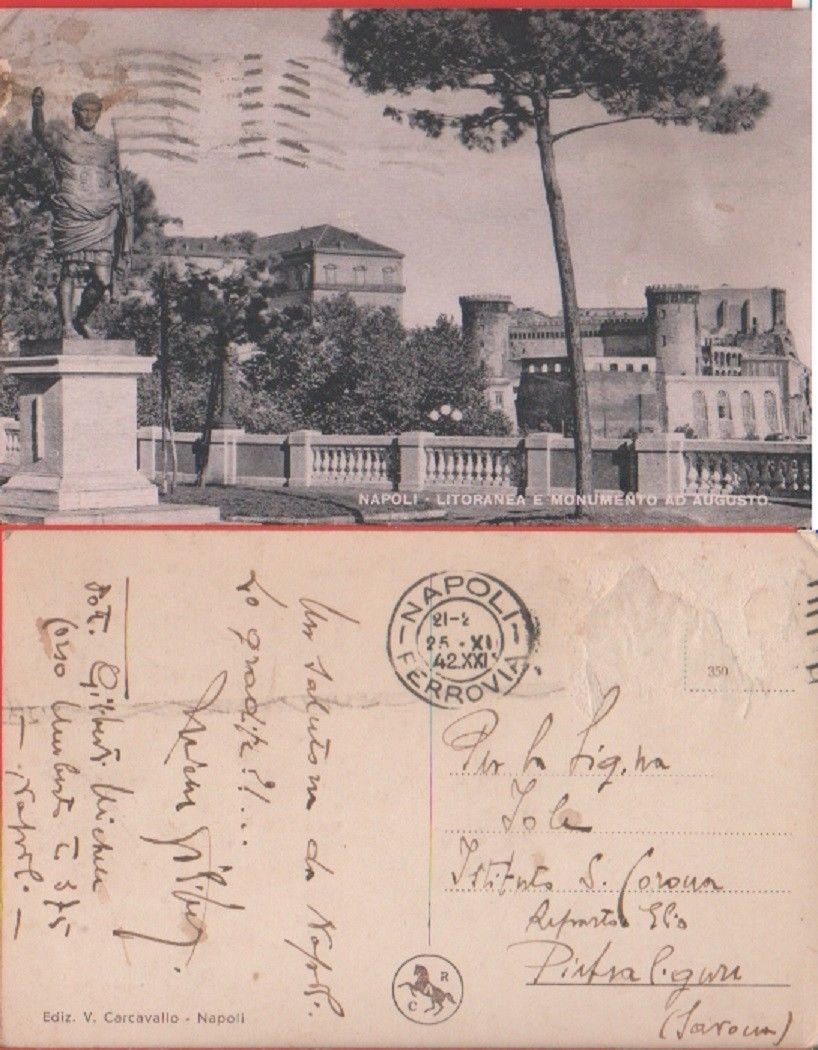 NAPOLI - LITORANEA E MONUMENTO AD AUGUSTO.
Un saluto da Napoli.
Lo gradite?!...
Dot. Gilberti Michele
Corso Umberto I 375
- Napoli -
NAPOLI
21-2
25 · XI
42.XXI
FERROVIA
350
Per la Sig.na
Iole
Istituto S. Corona
Reparto Elio
Pietra Ligure
(Savona)
C R
Ediz. V. Carcavallo - Napoli